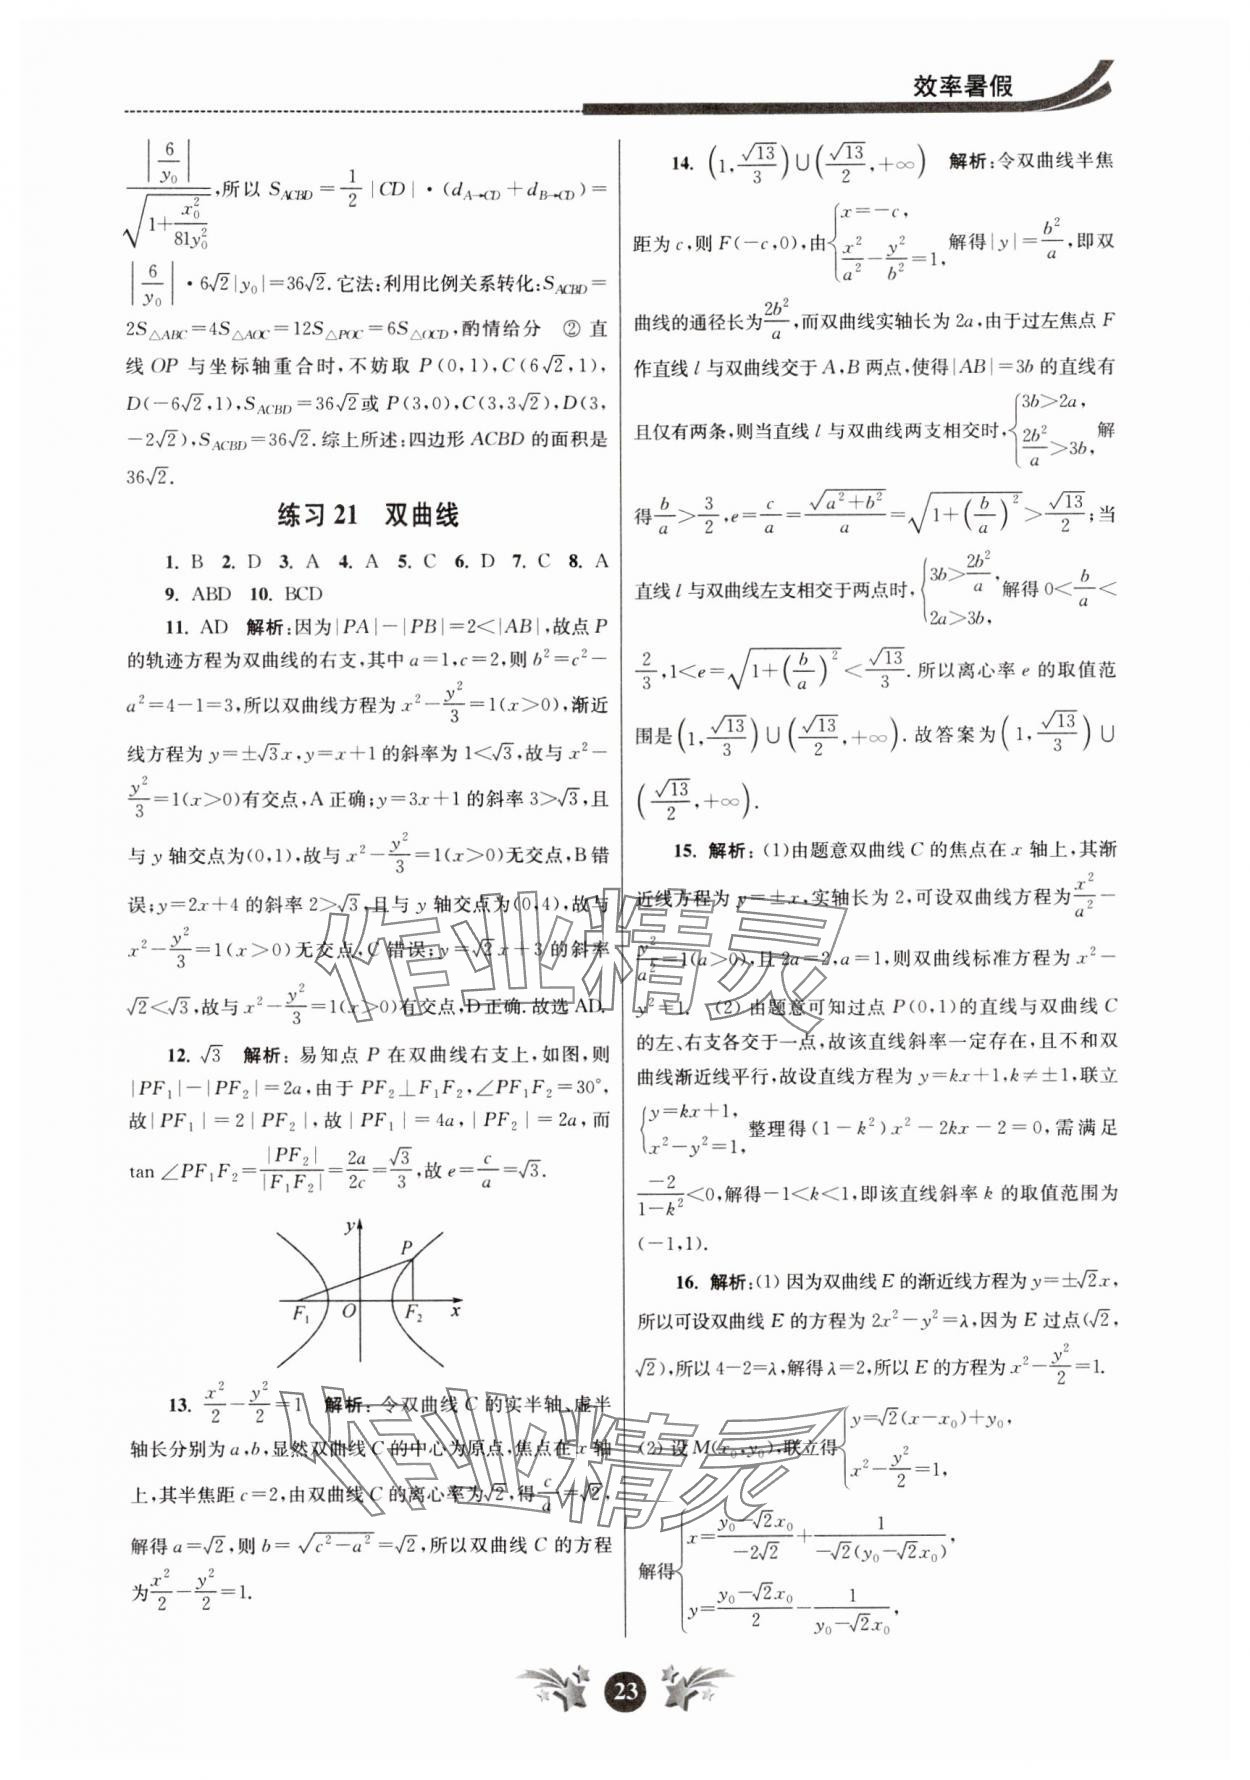 效率暑假
|6/y₀|/√(1+x₀²/81y₀²),所以 S_ACBD=1/2|CD|·(d_A→CD+d_B→CD)=
|6/y₀|·6√2|y₀|=36√2.它法:利用比例关系转化:S_ACBD=
2S△ABC=4S△AOC=12S△POC=6S△OCD,酌情给分 ② 直
线 OP 与坐标轴重合时,不妨取 P(0,1),C(6√2,1),
D(-6√2,1),S_ACBD=36√2或 P(3,0),C(3,3√2),D(3,
-2√2),S_ACBD=36√2.综上所述:四边形 ACBD 的面积是
36√2.
练习 21 双曲线
1. B 2. D 3. A 4. A 5. C 6. D 7. C 8. A
9. ABD 10. BCD
11. AD 解析:因为|PA|-|PB|=2<|AB|,故点 P
的轨迹方程为双曲线的右支,其中 a=1,c=2,则 b²=c²-
a²=4-1=3,所以双曲线方程为 x²-y²/3=1(x>0),渐近
线方程为 y=±√3x,y=x+1 的斜率为 1<√3,故与 x²-
y²/3=1(x>0)有交点,A 正确;y=3x+1 的斜率 3>√3,且
与 y 轴交点为(0,1),故与 x²-y²/3=1(x>0)无交点,B 错
误;y=2x+4 的斜率 2>√3,且与 y 轴交点为(0,4),故与
x²-y²/3=1(x>0)无交点,C 错误;y=√2x+3 的斜率
√2<√3,故与 x²-y²/3=1(x>0)有交点,D 正确.故选 AD.
12. √3 解析:易知点 P 在双曲线右支上,如图,则
|PF₁|-|PF₂|=2a,由于 PF₂⊥F₁F₂,∠PF₁F₂=30°,
故|PF₁|=2|PF₂|,故|PF₁|=4a,|PF₂|=2a,而
tan ∠PF₁F₂=|PF₂|/|F₁F₂|=2a/2c=√3/3,故 e=c/a=√3.
y
P
F₁ O F₂ x
13. x²/2-y²/2=1 解析:令双曲线 C 的实半轴、虚半
轴长分别为 a,b,显然双曲线 C 的中心为原点,焦点在 x 轴
上,其半焦距 c=2,由双曲线 C 的离心率为√2,得c/a=√2,
解得 a=√2,则 b=√(c²-a²)=√2,所以双曲线 C 的方程
为x²/2-y²/2=1.
14. (1,√13/3)∪(√13/2,+∞) 解析:令双曲线半焦
距为 c,则 F(-c,0),由{x=-c, x²/a²-y²/b²=1, 解得|y|=b²/a,即双
曲线的通径长为2b²/a,而双曲线实轴长为 2a,由于过左焦点 F
作直线 l 与双曲线交于 A,B 两点,使得|AB|=3b 的直线有
且仅有两条,则当直线 l 与双曲线两支相交时,{3b>2a, 2b²/a>3b, 解
得b/a>3/2,e=c/a=√(a²+b²)/a=√(1+(b/a)²)>√13/2;当
直线 l 与双曲线左支相交于两点时,{3b>2b²/a, 2a>3b, 解得 0<b/a<
2/3,1<e=√(1+(b/a)²)<√13/3.所以离心率 e 的取值范
围是(1,√13/3)∪(√13/2,+∞).故答案为(1,√13/3)∪
(√13/2,+∞).
15. 解析:(1)由题意双曲线 C 的焦点在 x 轴上,其渐
近线方程为 y=±x,实轴长为 2,可设双曲线方程为x²/a²-
y²/a²=1(a>0),且 2a=2,a=1,则双曲线标准方程为 x²-
y²=1. (2) 由题意可知过点 P(0,1)的直线与双曲线 C
的左、右支各交于一点,故该直线斜率一定存在,且不和双
曲线渐近线平行,故设直线方程为 y=kx+1,k≠±1,联立
{y=kx+1, x²-y²=1, 整理得(1-k²)x²-2kx-2=0,需满足
-2/(1-k²)<0,解得-1<k<1,即该直线斜率 k 的取值范围为
(-1,1).
16. 解析:(1) 因为双曲线 E 的渐近线方程为 y=±√2x,
所以可设双曲线 E 的方程为 2x²-y²=λ,因为 E 过点(√2,
√2),所以 4-2=λ,解得 λ=2,所以 E 的方程为 x²-y²/2=1.
(2) 设 M(x₀,y₀),联立得{y=√2(x-x₀)+y₀, x²-y²/2=1,
解得{x=(y₀-√2x₀)/(-2√2)+1/(-√2(y₀-√2x₀)), y=(y₀-√2x₀)/2-1/(y₀-√2x₀),
23
作业精灵
作业精灵